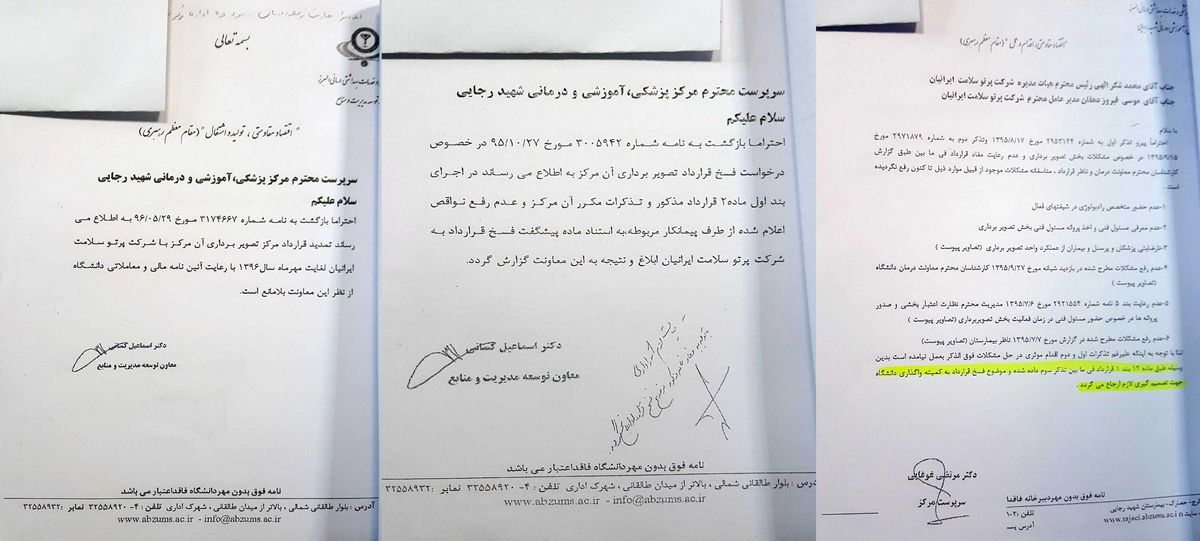 بسمه تعالی
"اقتصاد مقاومتی، تولید و اشتغال" (مقام معظم رهبری)
سرپرست محترم مرکز پزشکی،آموزشی و درمانی شهید رجایی
سلام علیکم
احتراما بازگشت به نامه شماره ۳۱۷۴۶۶۷ مورخ ۹۶/۰۵/۲۹ به اطلاع می
رساند تمدید قرارداد مرکز تصویر برداری آن مرکز با شرکت پرتو سلامت
ایرانیان لغایت مهرماه سال۱۳۹۶ با رعایت آئین نامه مالی و معاملاتی دانشگاه
از نظر این معاونت بلامانع است.
دکتر اسماعیل گشانی
معاون توسعه مدیریت و منابع
نامه فوق بدون مهردانشگاه فاقداعتبار می باشد
آدرس : بلوار طالقانی شمالی ، بالاتر از میدان طالقانی ، شهرک اداری تلفن : ۴- ۳۲۵۵۸۹۲۰ نمابر :۳۲۵۵۸۹۳۲
www.abzums.ac.ir - info@abzums.ac.ir
سرپرست محترم مرکز پزشکی،آموزشی و درمانی شهید رجایی
سلام علیکم
احتراما بازگشت به نامه شماره ۳۰۰۵۹۴۲ مورخ ۹۵/۱۰/۲۷ در خصوص
درخواست فسخ قرارداد تصویر برداری آن مرکز به اطلاع می رساند در اجرای
بند اول ماده۲ قرارداد مذکور و تذکرات مکرر آن مرکز و عدم رفع نواقص
اعلام شده از طرف پیمانکار مربوطه،به استناد ماده پیشگفت فسخ قرارداد به
شرکت پرتو سلامت ایرانیان ابلاغ و نتیجه به این معاونت گزارش گردد.
دکتر اسماعیل گشانی
معاون توسعه مدیریت و منابع
نامه فوق بدون مهردانشگاه فاقداعتبار می باشد
آدرس : بلوار طالقانی شمالی ، بالاتر از میدان طالقانی ، شهرک اداری تلفن : ۴- ۳۲۵۵۸۹۲۰ نمابر :۳۲۵۵۸۹۳۲
www.abzums.ac.ir - info@abzums.ac.ir
"اقتصاد مقاومتی، اقدام و عمل" (مقام معظم رهبری)
جناب آقای محمد شکر الهی رئیس محترم هیات مدیره شرکت پرتو سلامت ایرانیان
جناب آقای موسی فیروز دهقان مدیر عامل محترم شرکت پرتو سلامت ایرانیان
با سلام
احتراماً پیرو تذکر اول به شماره ۲۹۵۳۱۶۴ مورخ ۱۳۹۵/۸/۱۷ وتذکر دوم به شماره ۲۹۷۱۸۷۹ مورخ
۱۳۹۵/۹/۱۵ در خصوص مشکلات بخش تصویر برداری و عدم رعایت مفاد قرارداد فی ما بین طبق گزارش
کارشناسان محترم معاونت درمان و ناظر قرارداد ، متاسفانه مشکلات موجود از قبیل موارد ذیل تا کنون رفع نگردیده
است .
۱-عدم حضور متخصص رادیولوژی در شیفتهای فعال
۲-عدم معرفی مسئول فنی و اخذ پروانه مسئول فنی بخش تصویر برداری
۳-نارضایتی پزشکان و پرسنل و بیماران از عملکرد واحد تصویر برداری (تصاویر پیوست )
۴-عدم رفع مشکلات مطرح شده در بازدید شبانه مورخ ۱۳۹۵/۹/۲۷ کارشناسان محترم معاونت درمان دانشگاه
(تصاویر پیوست )
۵-عدم رعایت بند ۵ نامه شماره ۲۹۲۱۵۵۴ مورخ ۱۳۹۵/۷/۶ مدیریت محترم نظارت اعتبار بخشی و صدور
پروانه ها در خصوص حضور مسئول فنی در زمان فعالیت بخش تصویربرداری (تصاویر پیوست )
۶-عدم رفع مشکلات مطرح شده در گزارش مورخ ۱۳۹۵/۷/۷ ناظر بیمارستان (تصاویر پیوست )
لذا با توجه به اینکه علیرغم تذکرات اول و دوم اقدام موثری در حل مشکلات فوق الذکر بعمل نیامده است بدین
وسیله طبق ماده ۱۲ بند ۱ قرارداد فی ما بین تذکر سوم داده شده و موضوع فسخ قرارداد به کمیته واگذاری دانشگاه
جهت تصمیم گیری لازم ارجاع می گردد .
دکتر مرتضی فوقایی
سرپرست مرکز
نامه فوق بدون مهردبیرخانه فاقدا
کرج- حصارک-بیمارستان شهید رجایی
تلفن :۱۰۲
www.rajaei.abzums.ac.ir
آدرس پـ